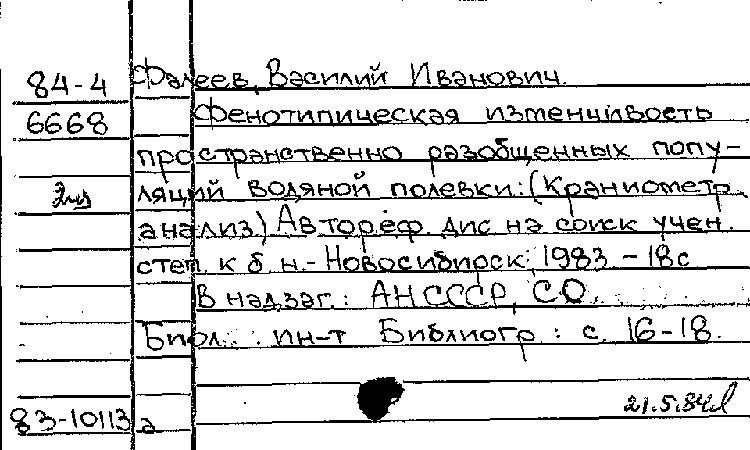 84-4 Фалеев, Василий Иванович.
6668 Фенотипическая изменчивость
пространственно разобщенных попу-
ляций водяной полевки: (Краниометр.
анализ) Автореф. дис на соиск учен.
степ. к б н. - Новосибирск, 1983 - 18 с
В надзаг.: АН СССР, СО
Биол. ин-т Библиогр: с. 16-18.
83-10113 а 21.5.84